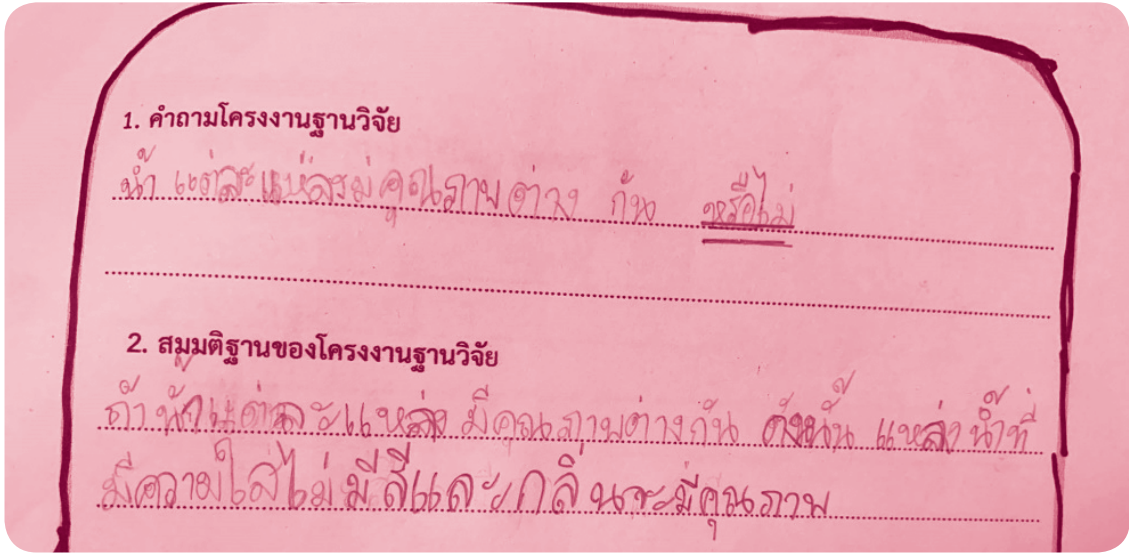 1. คำถามโครงงานฐานวิจัย
น้ำ แต่ละแหล่งมีคุณภาพต่าง กัน หรือไม่
2. สมมติฐานของโครงงานฐานวิจัย
ถ้าน้ำแต่ละแหล่ง มีคุณภาพต่างกัน ดังนั้น แหล่งน้ำที่
มีความใสไม่มีสีและกลิ่นจะมีคุณภาพ